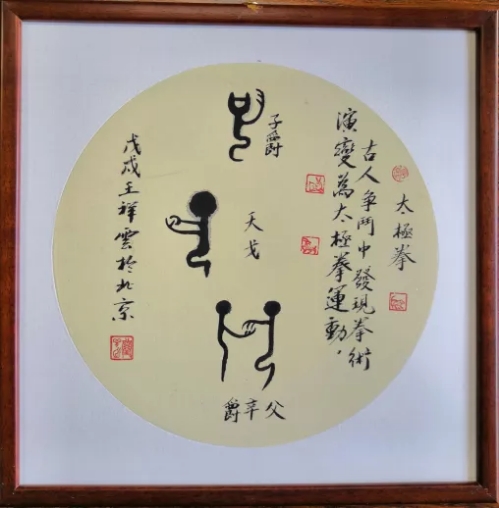 太極拳
古人争鬥中發現拳術
演變為太極拳運動，
子爵
天戈
父辛爵
戊戌王祥雲於北京